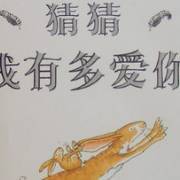 猜猜
我有多爱你